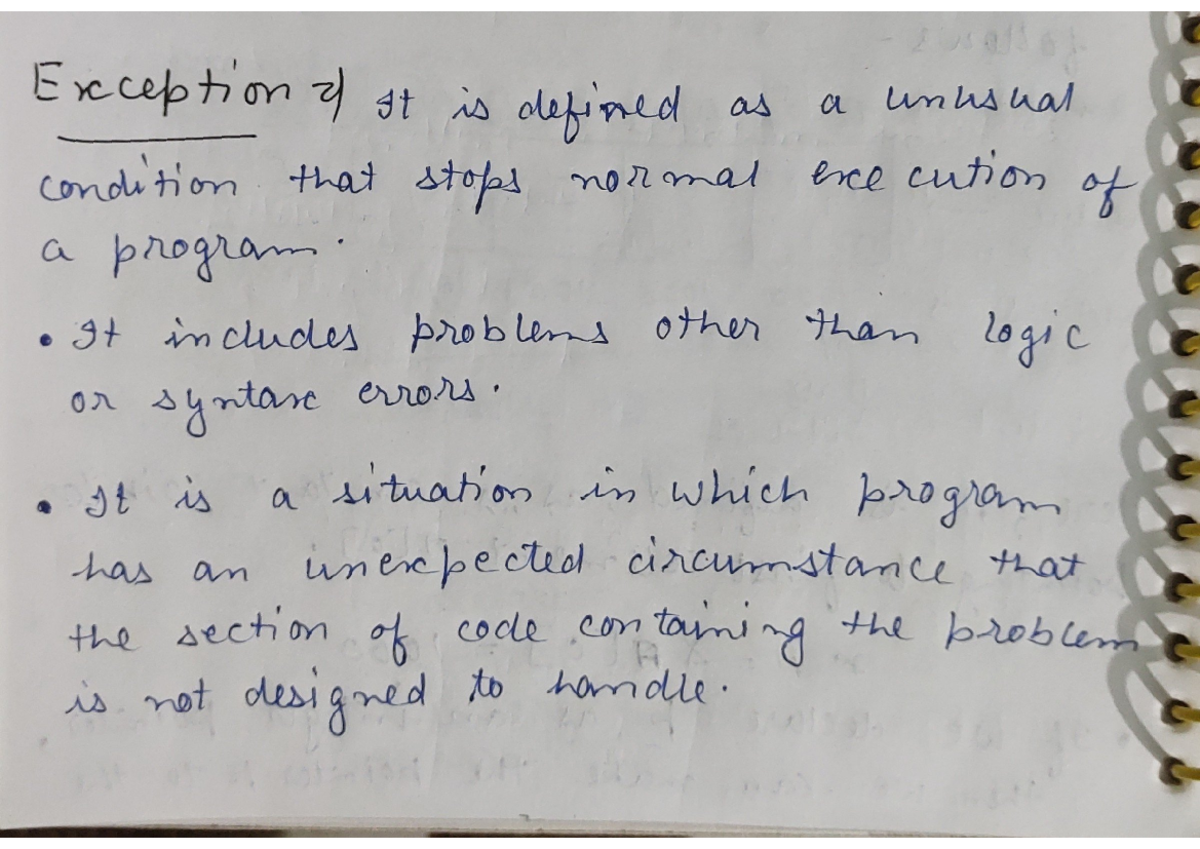 Exception ⇒ It is defined as a unusual
condition that stops normal execution of
a program.
• It includes problems other than logic
or syntax errors.
• It is a situation in which program
has an unexpected circumstance that
the section of code containing the problem
is not designed to handle.